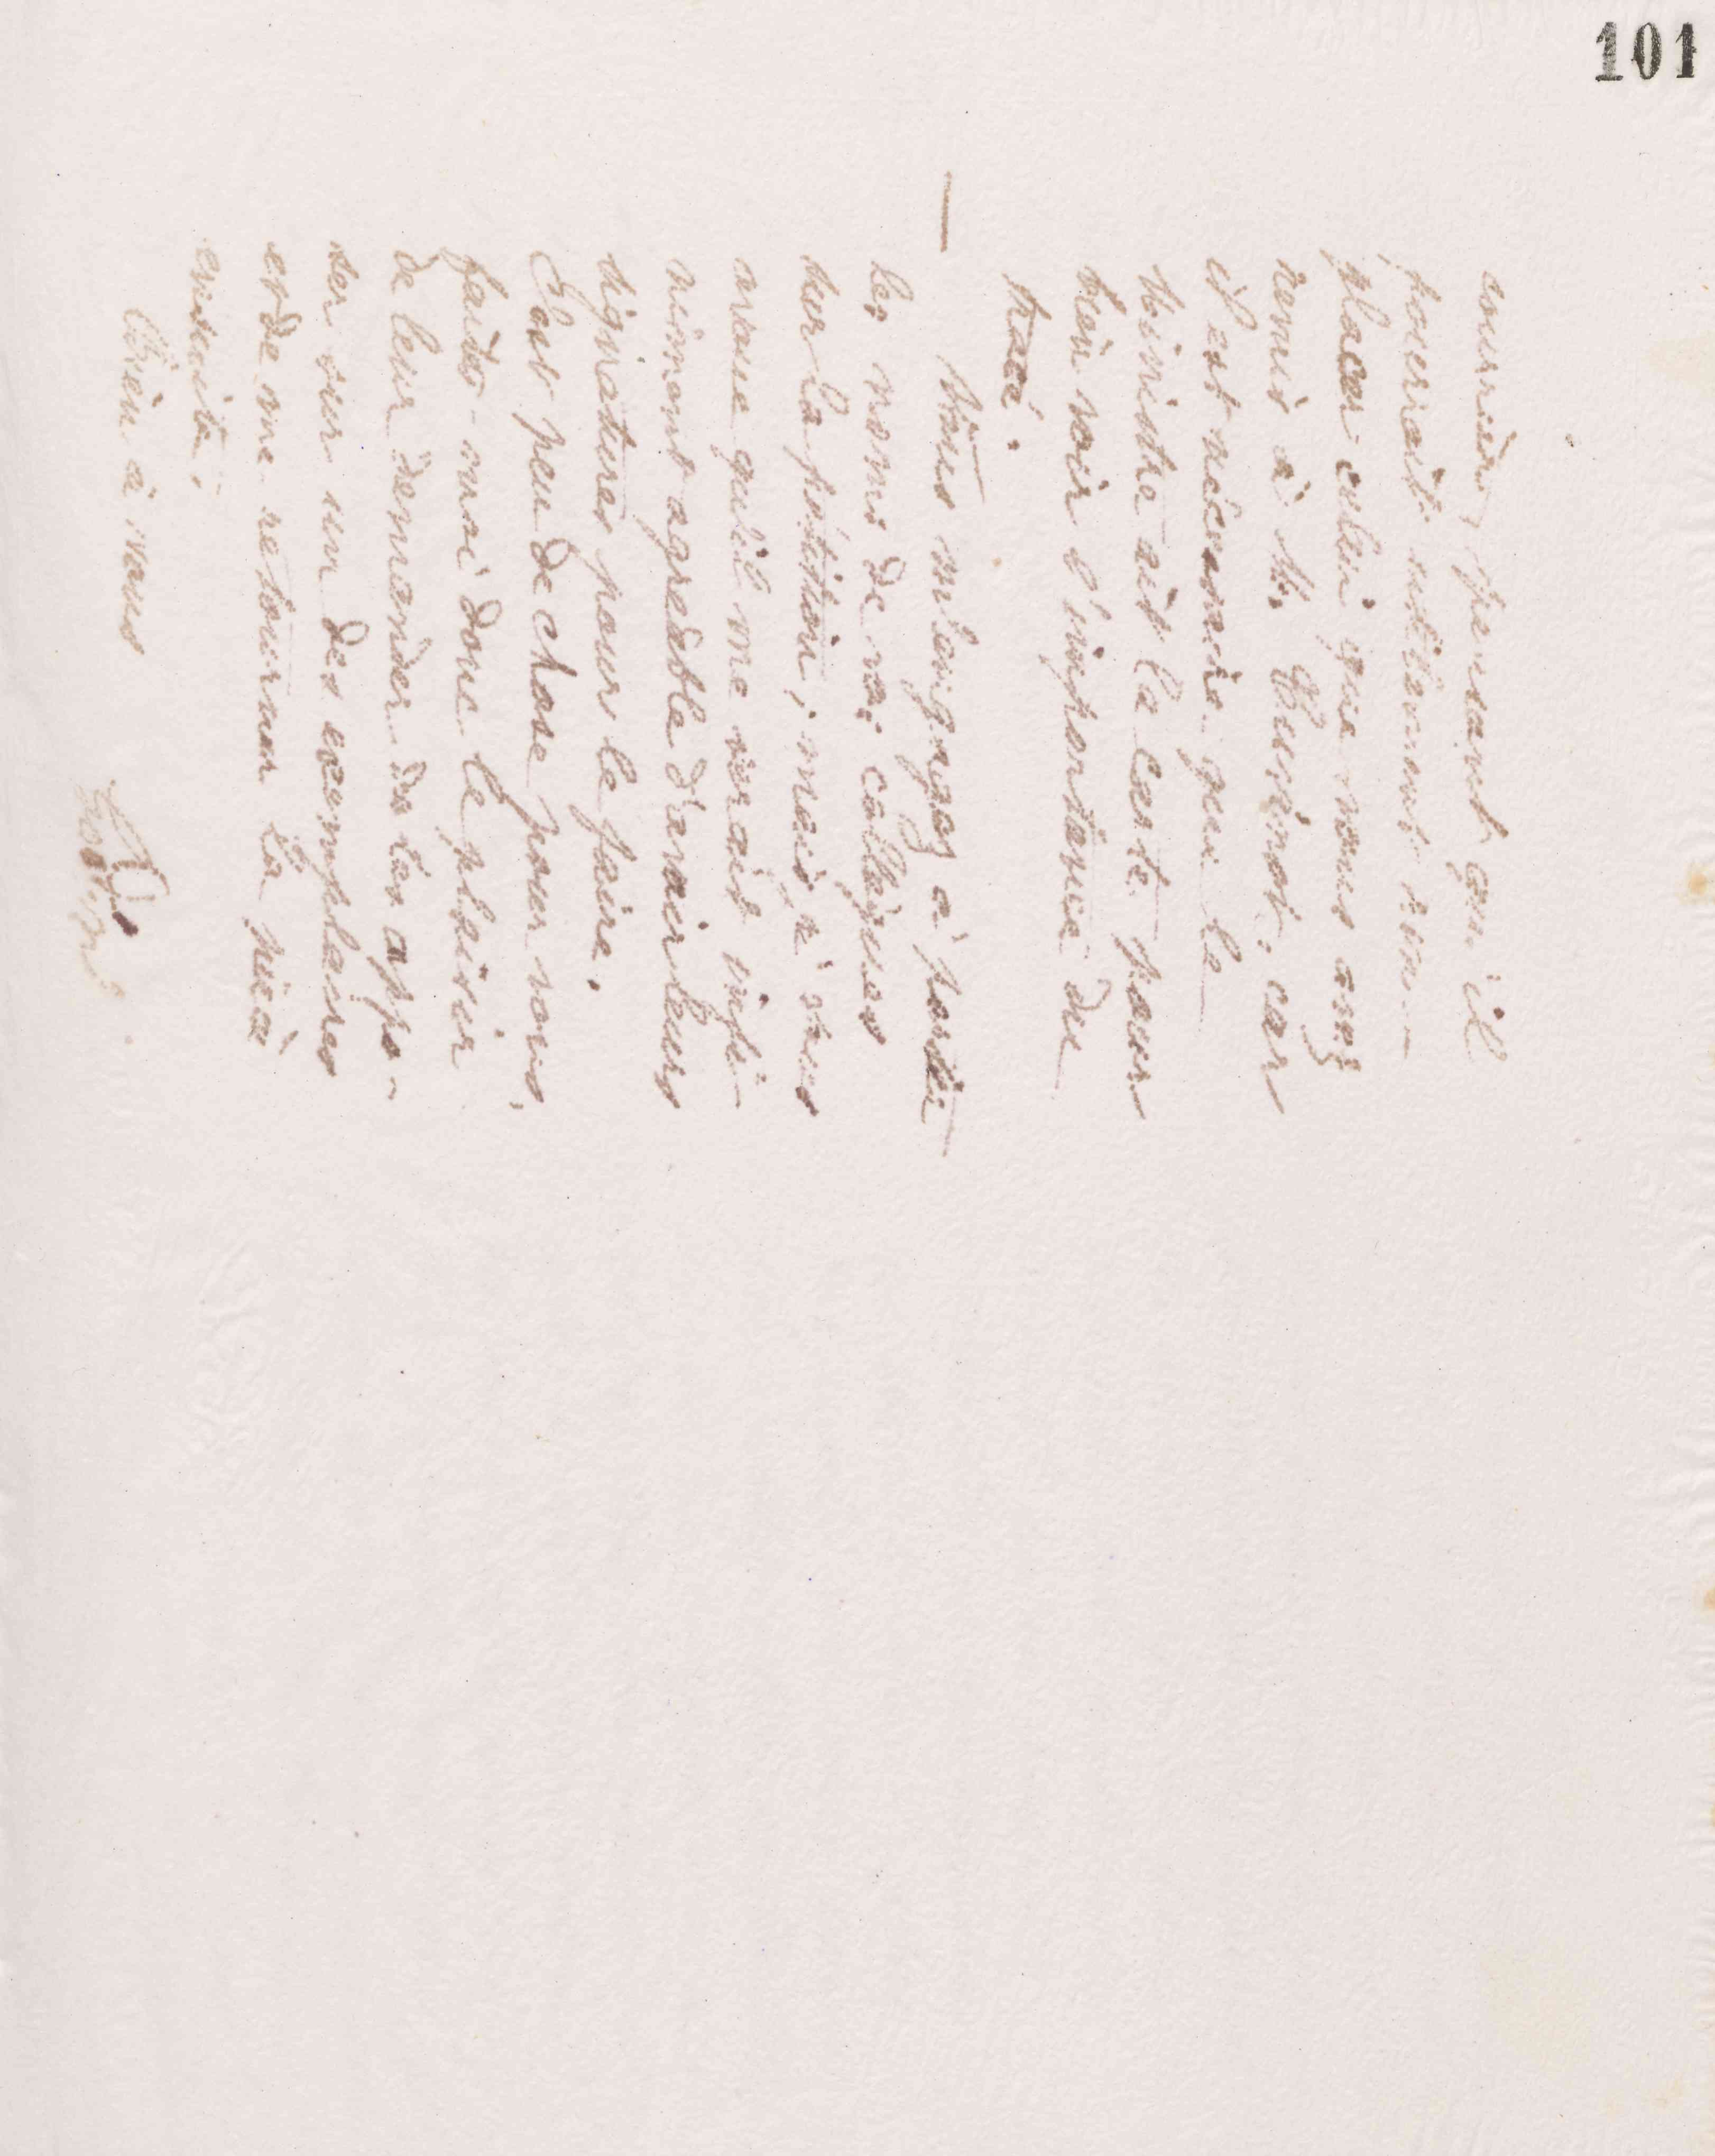 101
courrier, pensant qu'il
pourrait utilement rem-
placer celui que vous avez
remis à M. Cusinot, car
il est nécessaire que le
Ministre ait la carte pour
bien voir l'importance du
tracé.
— Vous m'engagez à porter
les noms de vos collègues
sur la pétition; mais je vous
avoue qu'il me serait infi-
niment agréable d'avoir leurs
signatures pour le faire.
C'est peu de chose pour vous,
faites-moi donc le plaisir
de leur demander de les appo-
ser sur un des exemplaires
et de me retourner la pièce
ensuite.
Bien à vous
Godin